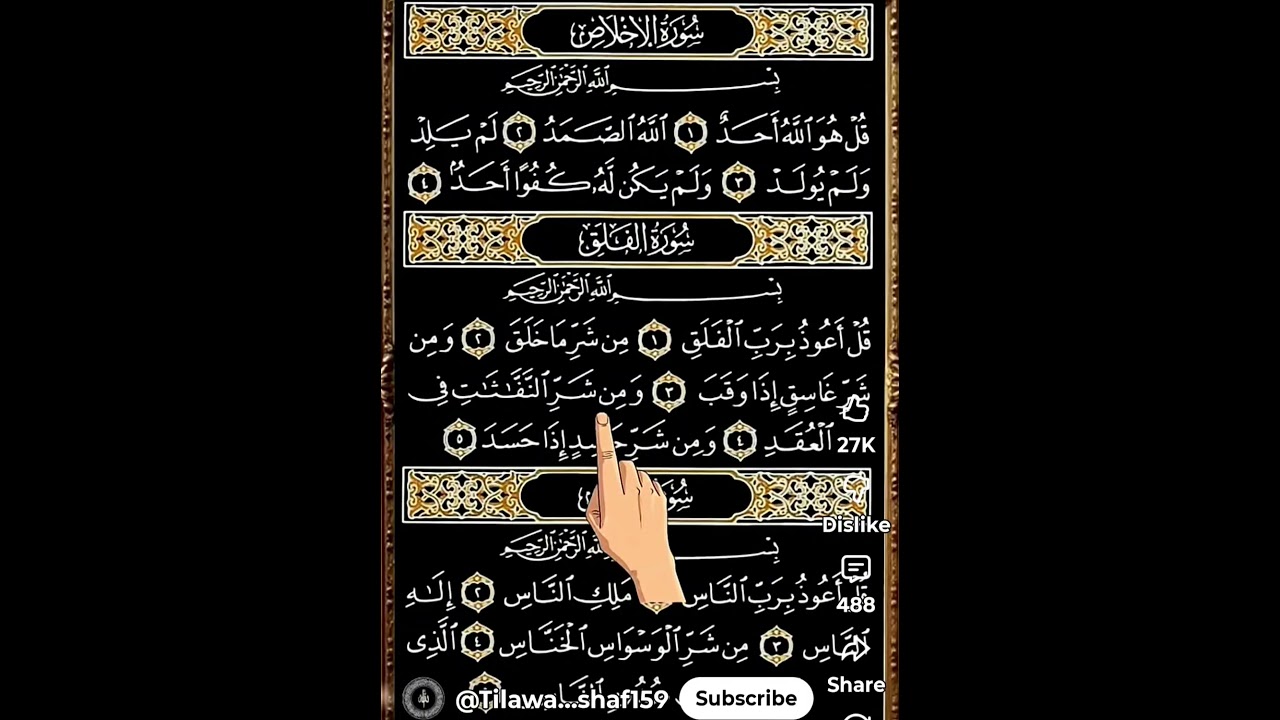 سُورَةُ الإِخْلَاصِ
بِسْمِ اللَّهِ الرَّحْمَٰنِ الرَّحِيمِ
قُلْ هُوَ ٱللَّهُ أَحَدٌ ١ ٱللَّهُ ٱلصَّمَدُ ٢ لَمْ يَلِدْ
وَلَمْ يُولَدْ ٣ وَلَمْ يَكُن لَّهُۥ كُفُوًا أَحَدٌۢ ٤
سُورَةُ الفَلَقِ
بِسْمِ اللَّهِ الرَّحْمَٰنِ الرَّحِيمِ
قُلْ أَعُوذُ بِرَبِّ ٱلْفَلَقِ ١ مِن شَرِّ مَا خَلَقَ ٢ وَمِن
شَرِّ غَاسِقٍ إِذَا وَقَبَ ٣ وَمِن شَرِّ ٱلنَّفَّٰثَٰتِ فِى
ٱلْعُقَدِ ٤ وَمِن شَرِّ حَاسِدٍ إِذَا حَسَدَ ٥
27K
سُورَةُ
Dislike
بِسْمِ اللَّهِ الرَّحْمَٰنِ الرَّحِيمِ
قُلْ أَعُوذُ بِرَبِّ ٱلنَّاسِ مَلِكِ ٱلنَّاسِ ٢ إِلَٰهِ
488
ٱلنَّاسِ ٣ مِن شَرِّ ٱلْوَسْوَاسِ ٱلْخَنَّاسِ ٤ ٱلَّذِى
Share
@Tilawa...shaf159 Subscribe